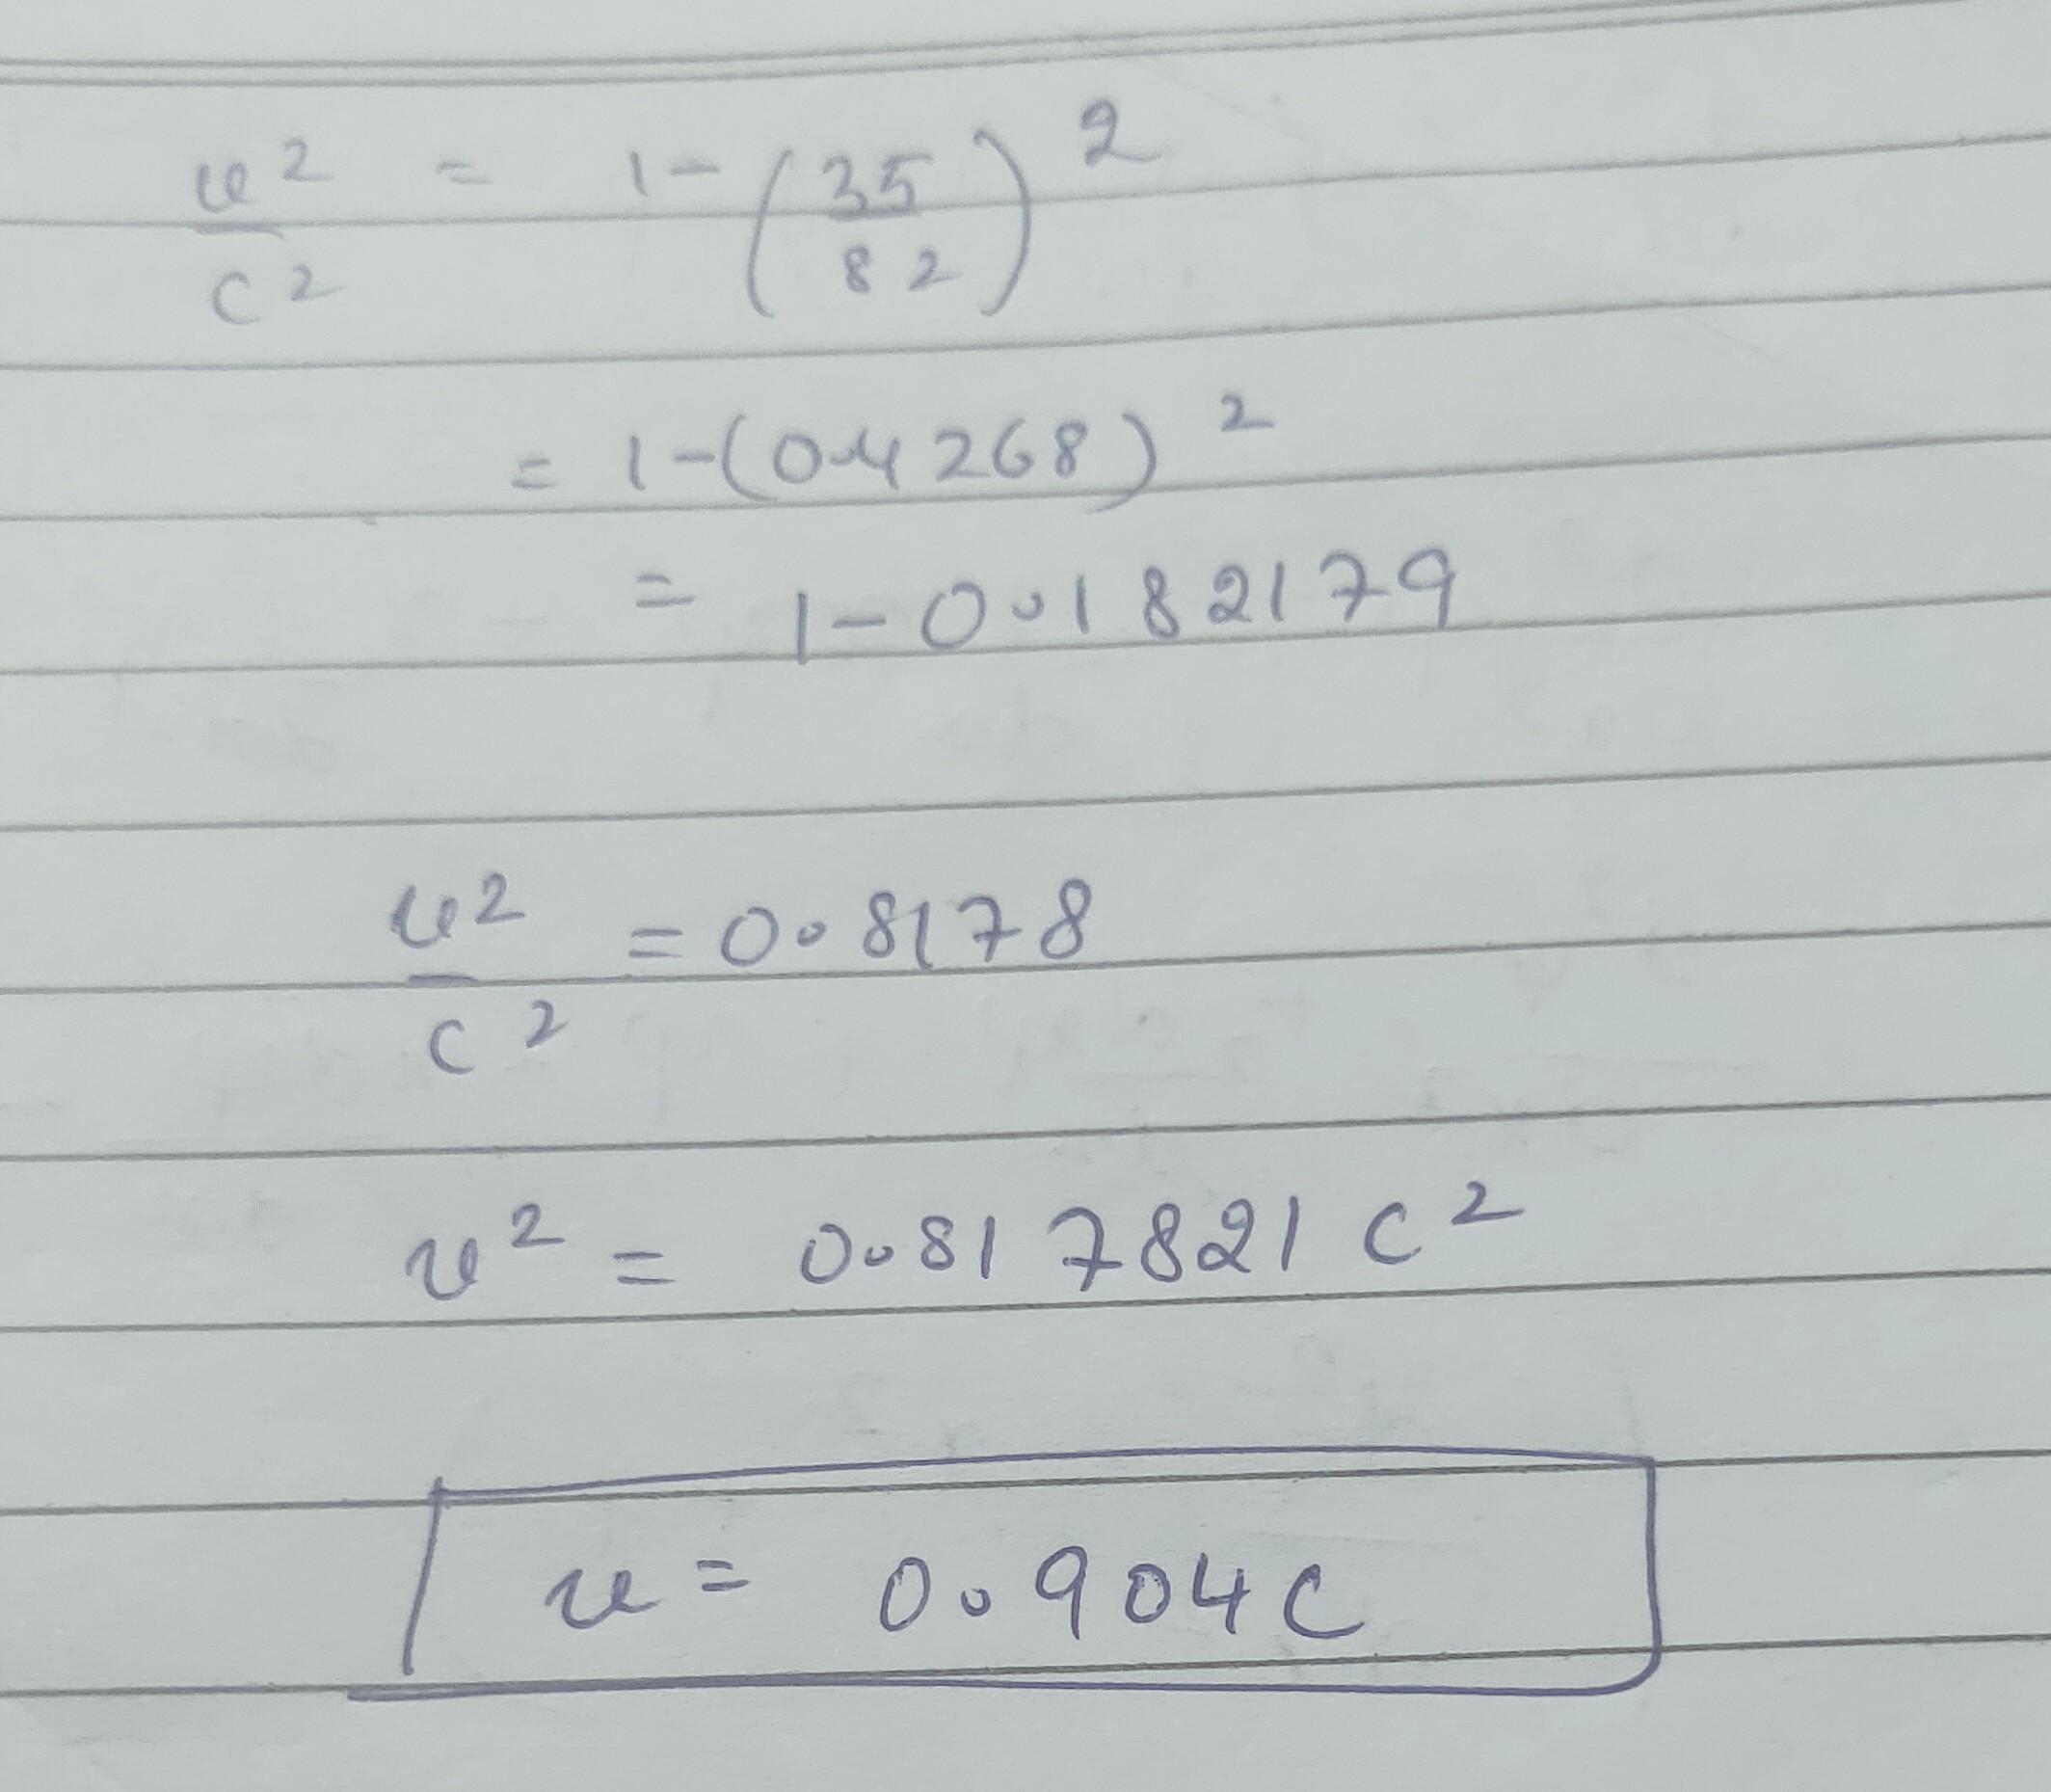 v²/c² = 1-(35/82)²
= 1-(0.4268)²
= 1-0.182179
v²/c² = 0.8178
v² = 0.817821 c²
v = 0.904c